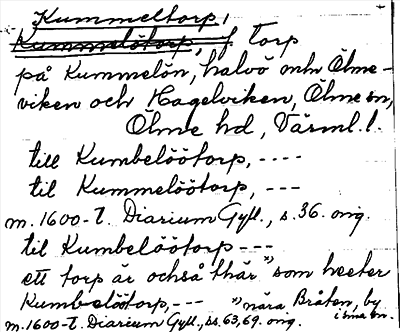 Kummeltorp,
Kummelötorp, f torp
på Kummelön, halvö mln Ölme-
viken och Hagelviken, Ölme sn,
Ölme hd, Värml. l.
till Kumbelöötorp, ----
til Kummelöötorp, ---
m. 1600-t. Diarium Gyll., s. 36. orig.
til Kumbelöötorp ---
ett torp är ochså thär *) som heeter
Kumbelöötorp, --- *) nära Bråten, by
i sma sn.
m. 1600-t. Diarium Gyll., ss. 63, 69. orig.